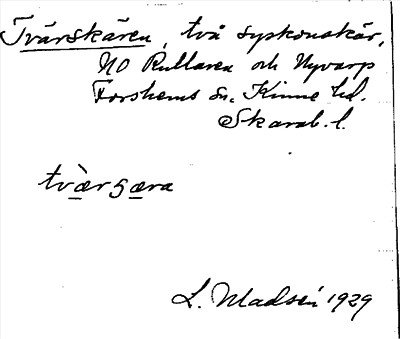 Tvärskären, två syskonskär,
NO Rullaren och Nyvarp
Forshems sn. Kinne hd.
Skarab. l.
tvæ̀rsæra
L. Madsén 1929